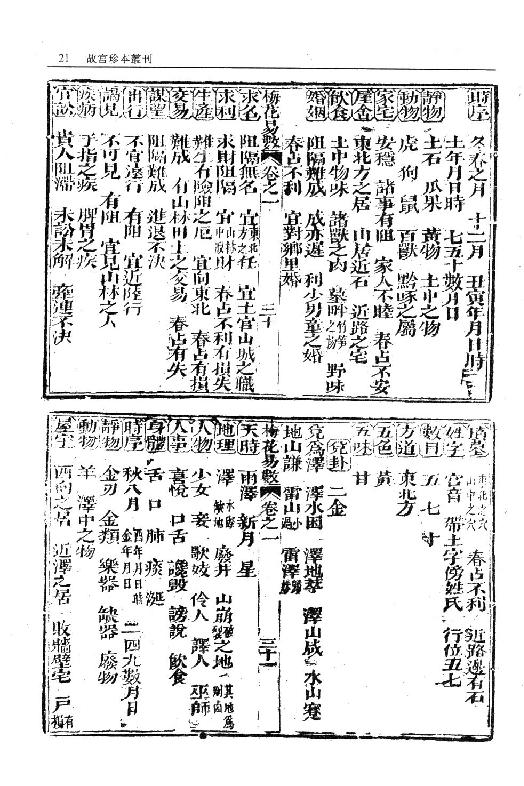 21 故宫珍本叢刊
時序 冬春之月 十二月 丑寅年月日時
土年月日時 七五十數月日
靜物 土石 瓜果 黃物 土中之物
動物 虎 狗 鼠 百獸 黔喙之屬
家宅 安穩 諸事有阻 家人不睦 春占不安
屋舍 東北方之居 山居近石 近路之宅
飲食 土中物味 諸獸之肉 墓畔竹笋之物 野味
婚姻 阻隔難成 成亦遲 利少男童之婚
春占不利 宜對鄉里婚
梅花易數 卷之一 三十
求名 阻隔無名 宜東北方任 宜土官山城之職
求利 求財阻隔 宜山林中取財 春占不利有損失
生產 難生有險阻之厄 宜向東北 春占有損
交易 難成 有山林田土之交易 春占有失
謀望 阻隔難成 進退不決
出行 不宜遠行 有阻 宜近陸行
謁見 不可見 有阻 宜見山林之人
疾病 手指之疾 脾胃之疾
官訟 貴人阻滯 未訟未解 牽連不決
墳墓 東北之穴 山中之穴 春占不利 近路邊有石
姓字 宫音 帶土字傍姓氏 行位五七
數目 五 七 十
方道 東北方
五色 黃
五味 甘
兌卦 二 金
兌為澤 澤水困 澤地萃 澤山咸 水山蹇
地山謙 雷山小過 雷澤歸妹
梅花易數 卷之一 三十一
天時 雨澤 新月 星
地理 澤 水際 缺池 廢井 山崩破裂之地 其地為剛鹵
人物 少女 妾 歌妓 伶人 譯人 巫師
人事 喜悅 口舌 讒毀 謗說 飲食
身體 舌 口 肺 痰 涎
時序 秋八月 酉年月日時 金年月日 二四九數月日
靜物 金刃 金類 樂器 缺器 廢物
動物 羊 澤中之物
屋宇 西向之居 近澤之居 敗牆壁宅 戶有損